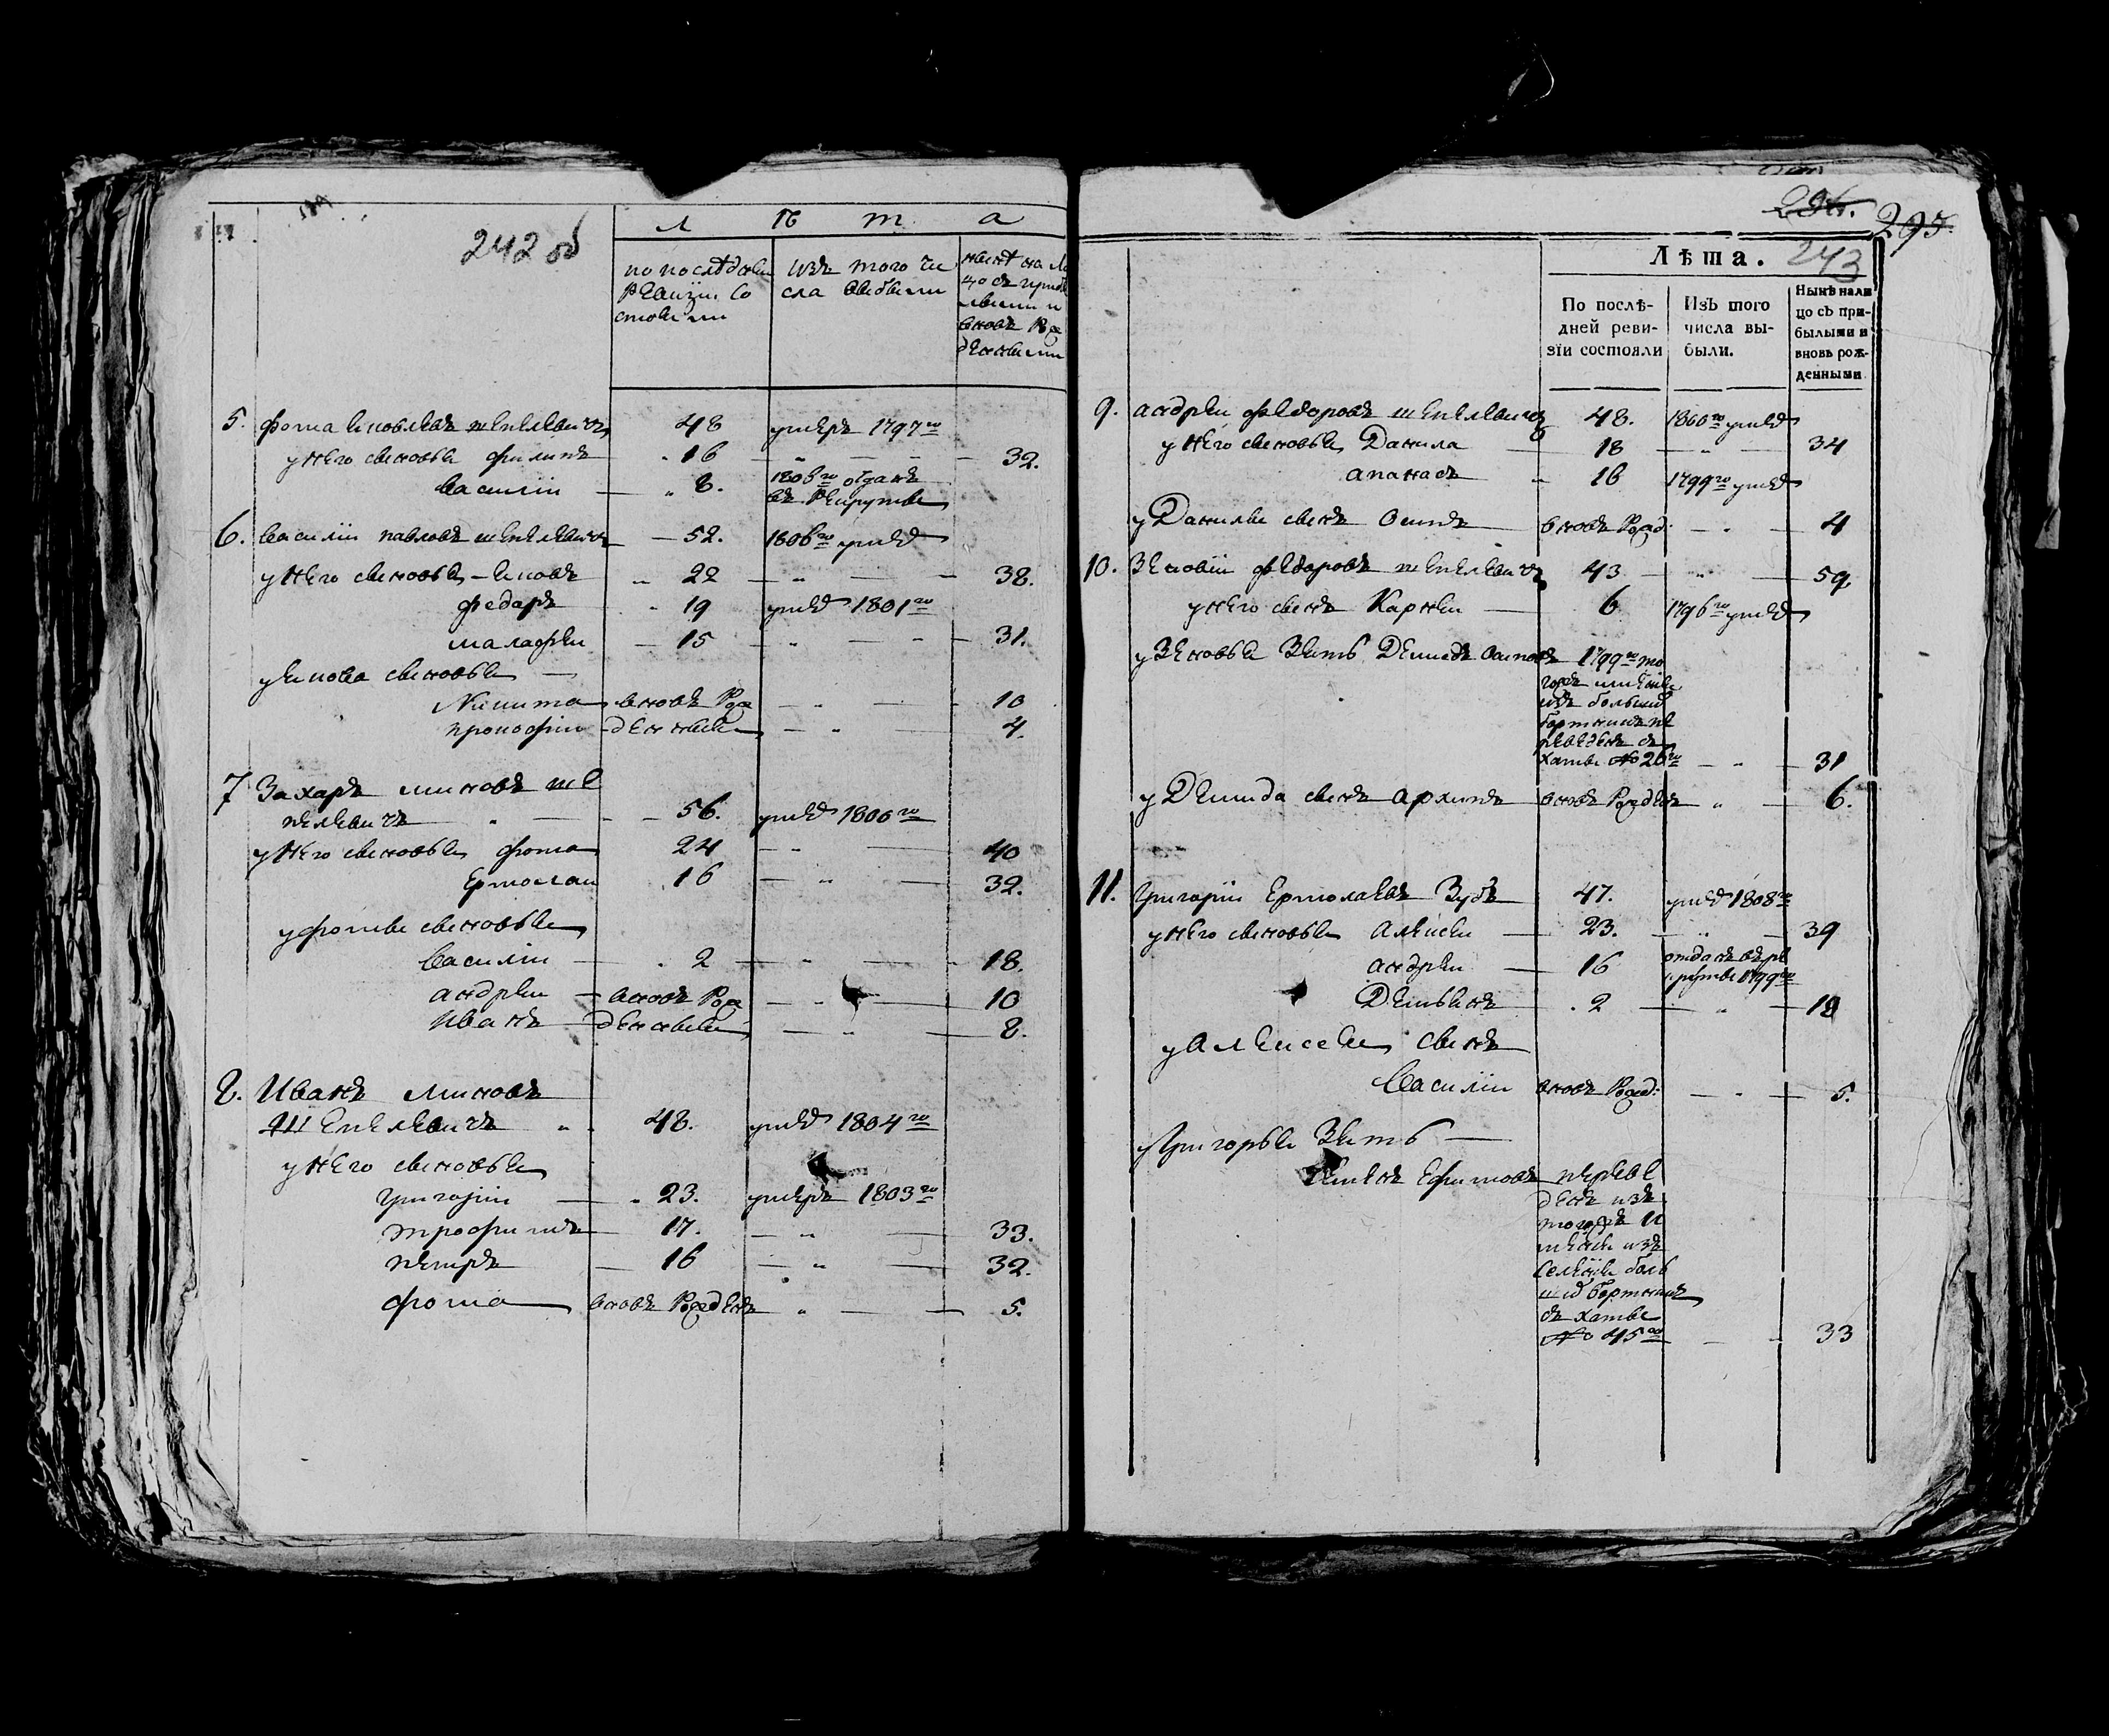 242 об
л ѣ т а
по последней ревизіи состояли
изъ того числа выбыли
5. Фома Яковлевъ Шепелевичъ 48 умеръ 1797го
у него сыновья Филипъ 16 — " — 32.
Василiй 8. 1806го отданъ въ рекруты
6. Василiй Павловъ Шепелевичъ 52. 1806го умеръ
у него сыновья Яковъ 22 — " — 38.
Федаръ 19 умеръ 1801го
Малафей 15 — " — 31.
у Якова сыновья —
Никита вновь рож — " — 10
Прокофiй денныи — " — 4.
7 Захаръ Миновъ Ше
пелевичъ " — 56. умеръ 1806го
у него сыновья Фома 24 — " — 40
Ермолай 16 — " — 32.
у Фомы сыновья
Василiй — 2 — " — 18.
Андрей — вновь рож — " — 10
Иванъ — денныи — " — 8.
8. Иванъ Миновъ
Шепелевичъ " 48. умеръ 1804го
у него сыновья
Григорiй — 23. умеръ 1803го
Трофимъ — 17. — " — 33.
Петръ — 16 — " — 32.
Фома вновь рожденъ " — 5.
296. 295.
Лѣта. 243
По послѣ-дней реви-зiи состояли
Изъ того числа вы-были.
Нынѣ нали цо съ при-былыми и вновь рож-денными
9. Андрей Федоровъ Шепелевичъ 48. 1800го умеръ
у него сыновья Данила — 18 — " — 34
Апанасъ " 16 1799го умеръ
у Данилы сынъ Осипъ — вновь рожд: — " — 4
10. Зеновiй Федаровъ Шепелевичъ 43 — " — 59
у него сынъ Карней — 6 1796го умеръ
у Зеновья зять Демидъ Осиповъ 1799го то
гожъ именiя
изъ большихъ
бортникъ пе
реведенъ съ
хаты № 26го — " — 31
у Демида сынъ Архипъ вновь рожденъ " — 6.
11. Григорiй Ермолаевъ Зубъ 47. умеръ 1808го
у него сыновья Алексей — 23. — " — 39
Андрей — 16 отданъ въ ре
круты 1799го
Демьянъ . 2 — " — 18
у Алексея сынъ
Василiй вновь рожд: — " — 5.
у Григорья зять —
Ефимовъ переве
денъ изъ
тогожъ и
менiя изъ
селенiя боль
ших бортникъ
съ хаты
№ 45го — " 33